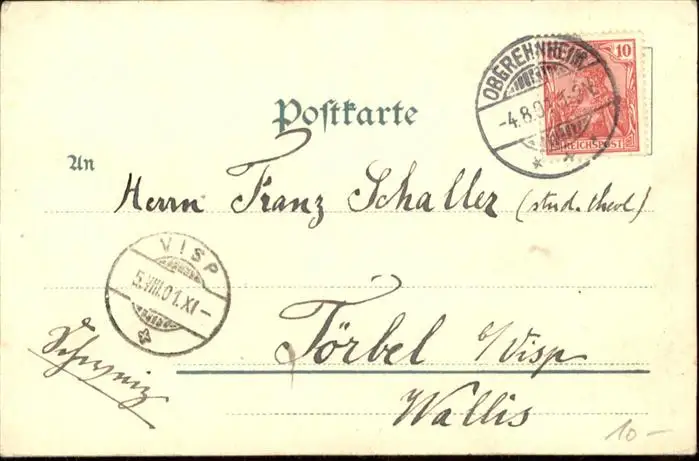 10
REICHSPOST
OBEREHNHEIM
-4.8.01.
Postkarte
An
Herrn Franz Schaller (stud. theol)
VISP
5.VIII.01.XI-
Törbel b/Visp
Schweiz
Wallis
10-